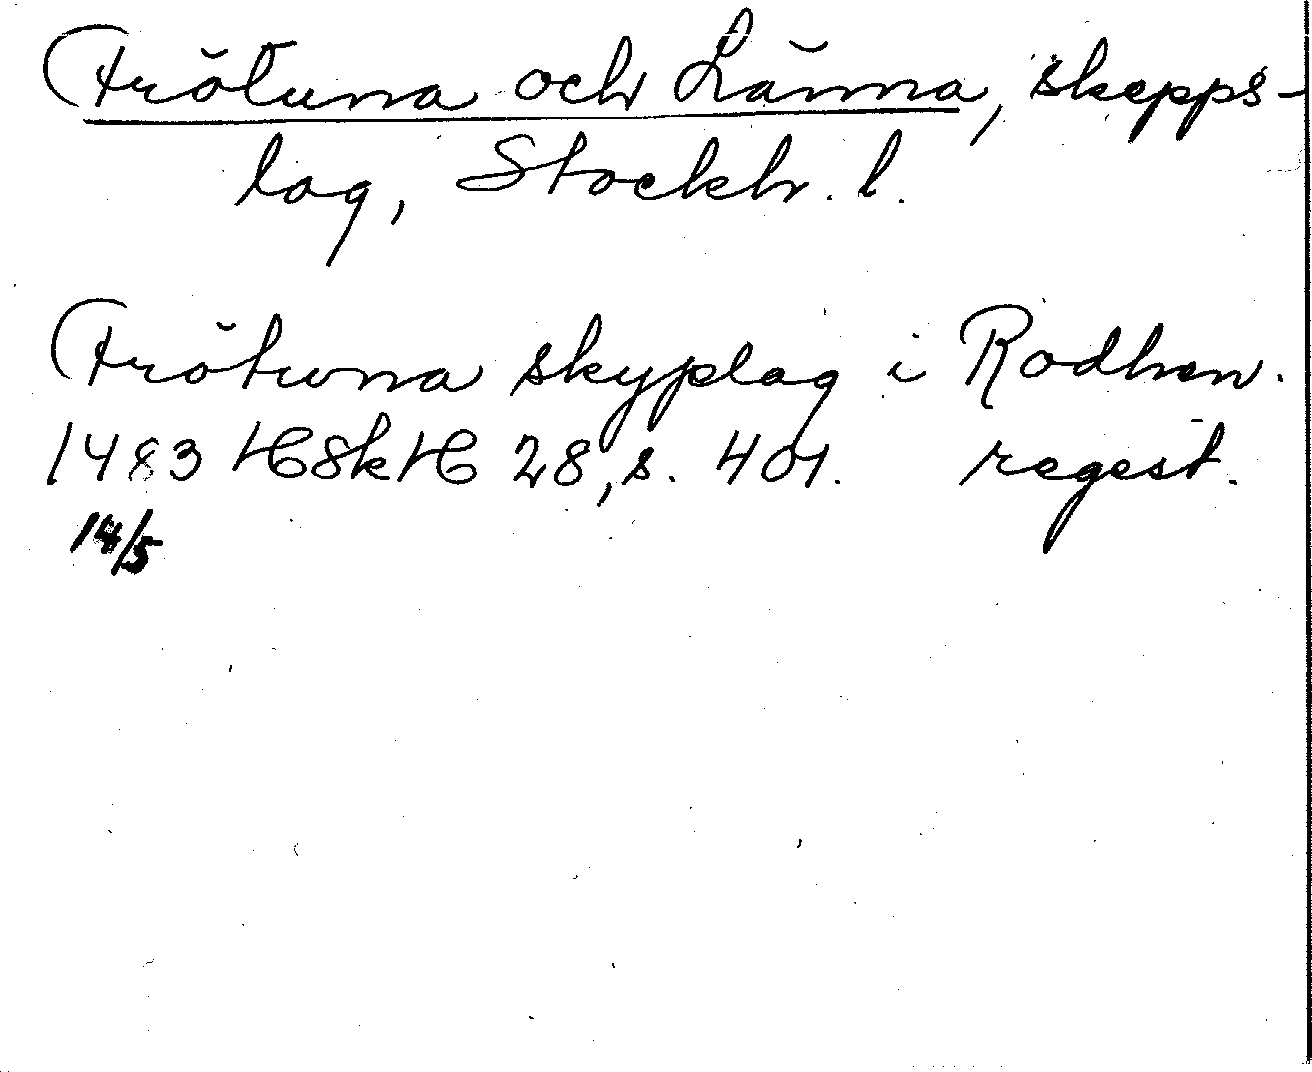 Frötuna och Länna, skepps-
lag, Stockh. l.
Frötuna skyplag i Rodhen.
1483 HSkH 28, s. 401. regest.
14/5